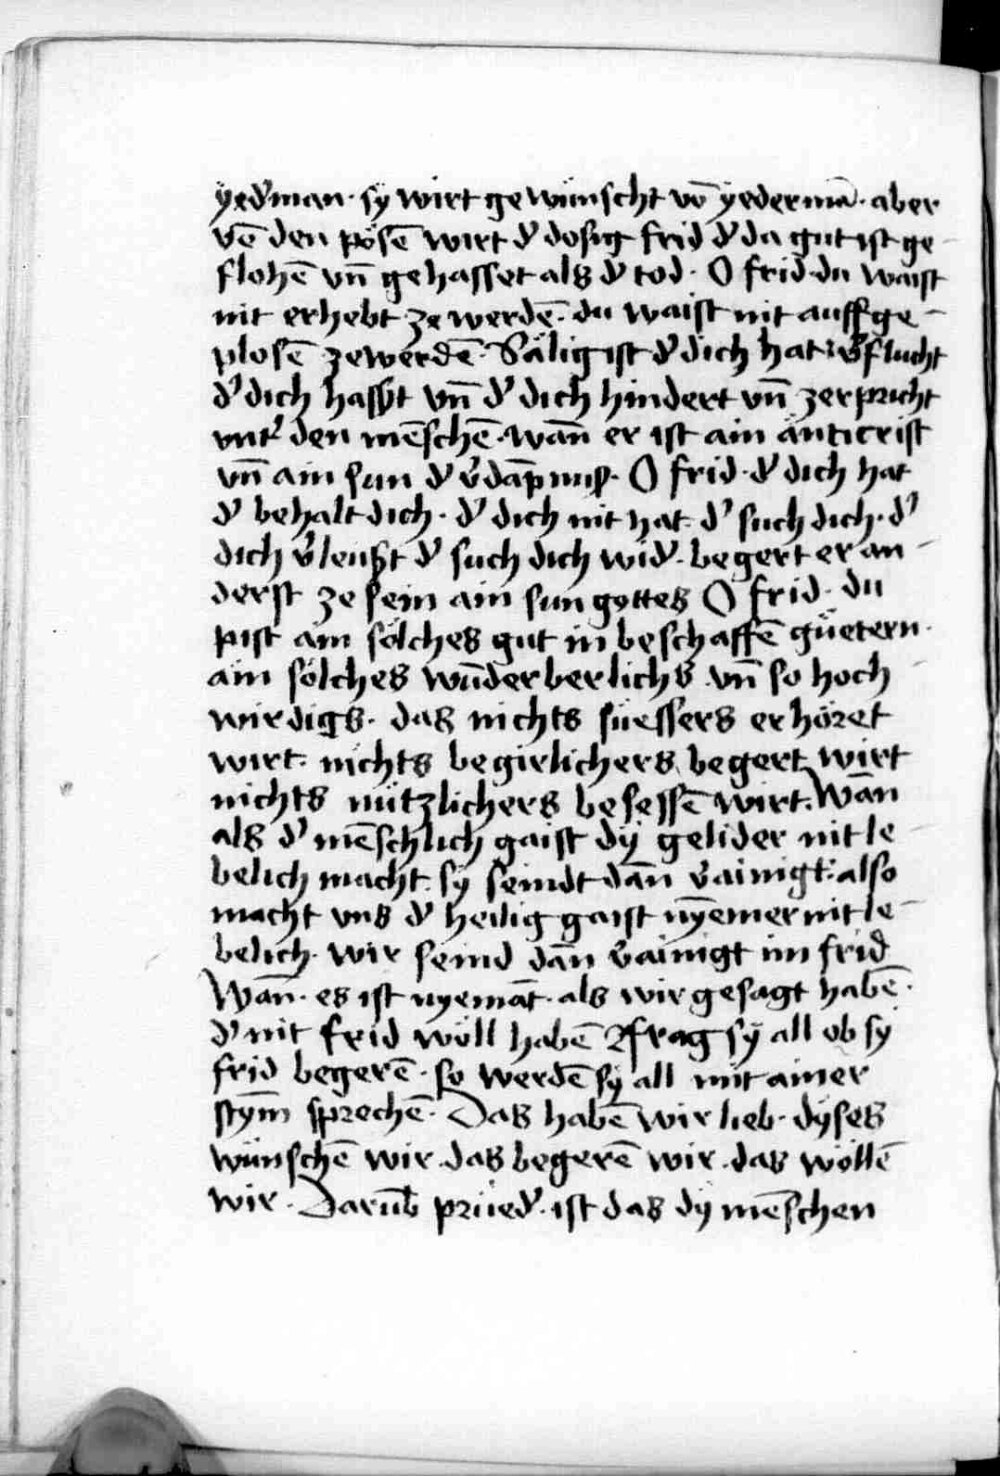 yed̾man · sy wirt gewünscht vō yedermā · aber
vē den pösē wirt d̾ dosig frid d̾ da gut ist ge-
flohē vn̄ gehasset als d̾ tod · O frid · du waist
nit erhebt ze werdē · du waist nit auffge-
plosē ze werdē · Sälig ist d̾ dich hat · v̾flucht
d̾ dich hasst vn̄ d̾ dich hindert vn̄ zerpricht
vnt̾ den mēschē · wān er ist ain anticrist
vn̄ ain sun d̾ v̾dāpnuß · O frid · d̾ dich hat
d̾ behalt dich · d̾ dich nit hat · d̾ such dich · d̾
dich v̾leußt d̾ such dich wid̾ · begert er an-
derst ze sein ain sun gottes O frid · du
pist ain sölches gut in beschaffē güetern ·
ain sölches wūderberlichs vn̄ so hoch-
wirdigs · das nichts süessers erhöret
wirt · nichts begirlichers begert wirt
nichts nützlichers besessē wirt · Wān
als d̾ mēschlich gaist dy gelider nit le-
belich macht · sy seindt dān v̾ainigt · also
macht vns d̾ heilig gaist nyēmer nit le-
belich · wir seind dān v̾ainigt im frid
Wān · es ist nyemāt · als wir gesagt habē ·
d̾ nit frid wöll habē frag sy all ob sy
frid begerē · so werdē sy all mit ainer
stym̄ sprechē · Das habē wir lieb · dyses
wünschē wir · das begerē wir · das wöllē
wir · Darūb prüed̾ · ist das dy mēschen